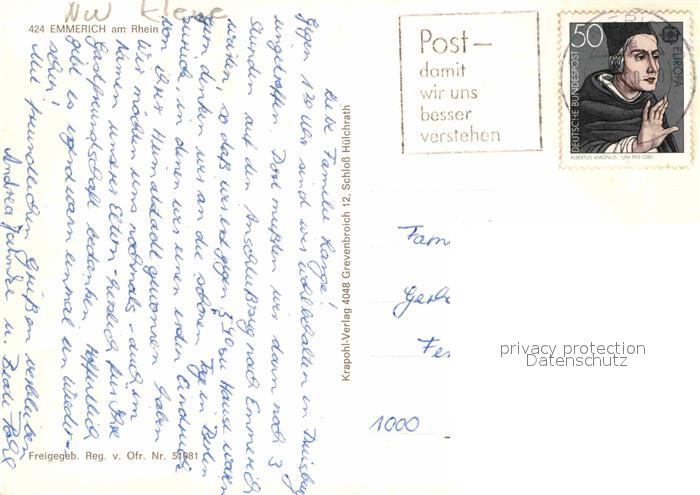 NW Kleve
424 EMMERICH am Rhein
Liebe Familie
Gegen 1 30 Uhr sind wir wohlbehalten in Duisburg
eingetroffen. Dort mußten wir dann noch 3
Stunden auf den Anschlußzug nach Emmerich
warten, so daß wir erst gegen 5 40 zu Hause waren.
Gern denken wir an die schönen Tage in Berlin
zurück, in denen wir einen ersten Eindruck
von Ihrer Heimatstadt gewonnen haben.
Wir möchten uns nochmals - auch im
Namen unserer Eltern - herzlich für Ihre
Gastfreundschaft bedanken. Hoffentlich
gibt es irgendwann einmal ein Wieder-
sehen.
Mit freundlichen Grüßen verbleiben
Andrea u. Beate
Freigegeb. Reg. v. Ofr. Nr. 51981
Krapohl-Verlag 4048 Grevenbroich 12, Schloß Hülchrath
Post –
damit
wir uns
besser
verstehen
50
DEUTSCHE BUNDESPOST
EUROPA
ALBERTUS MAGNUS · UM 1193-1280
Fam
Gerh
Fer
1000
privacy protection
Datenschutz